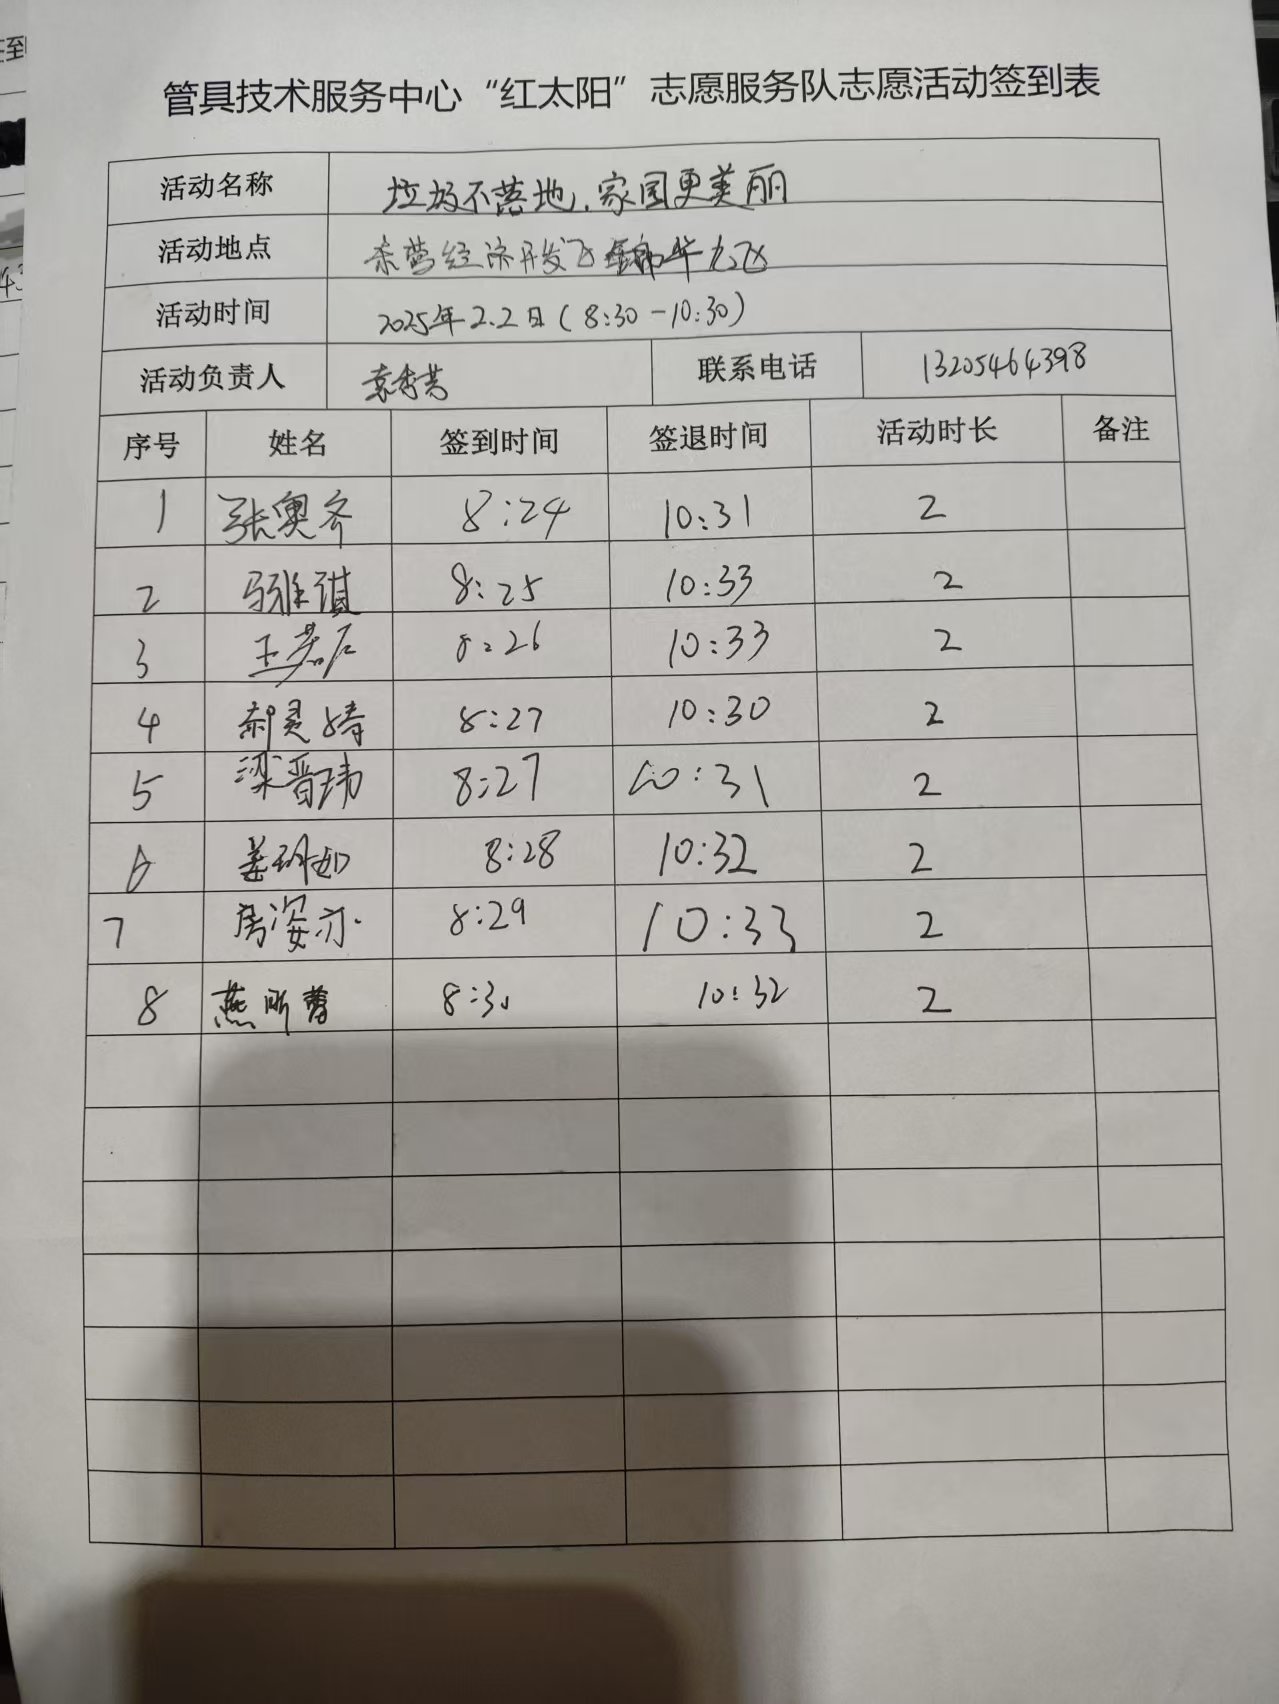 管具技术服务中心“红太阳”志愿服务队志愿活动签到表
活动名称 垃圾不落地,家园更美丽
活动地点 东营经济开发区锦华九区
活动时间 2025年2.2日(8:30-10:30)
活动负责人 袁秀芳 联系电话 13205464398
序号 姓名 签到时间 签退时间 活动时长 备注
1 张奥齐 8:24 10:31 2
2 马雅祺 8:25 10:33 2
3 王若 8:26 10:33 2
4 郝灵婧 8:27 10:30 2
5 梁晋玮 8:27 10:31 2
6 姜珂如 8:28 10:32 2
7 房姿亦 8:29 10:33 2
8 燕昕蕾 8:30 10:32 2